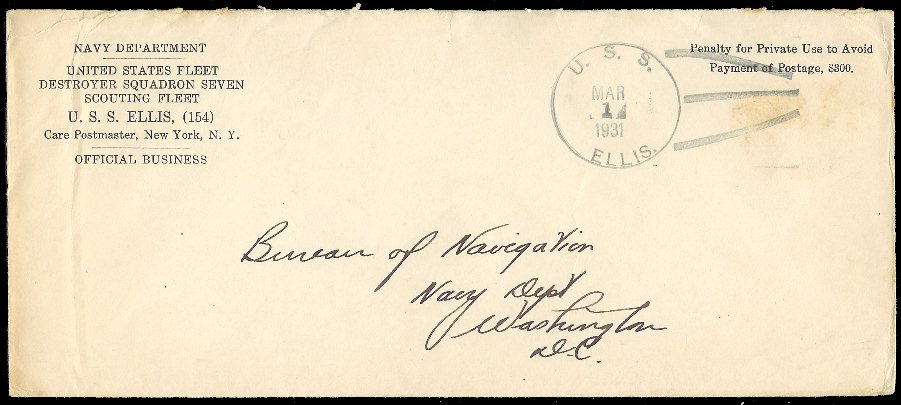 NAVY DEPARTMENT
UNITED STATES FLEET
DESTROYER SQUADRON SEVEN
SCOUTING FLEET
U. S. S. ELLIS, (154)
Care Postmaster, New York, N. Y.
OFFICIAL BUSINESS
U. S. S.
MAR
1
1931
ELLIS.
Penalty for Private Use to Avoid
Payment of Postage, $300.
Bureau of Navigation
Navy Dept
Washington
D.C.